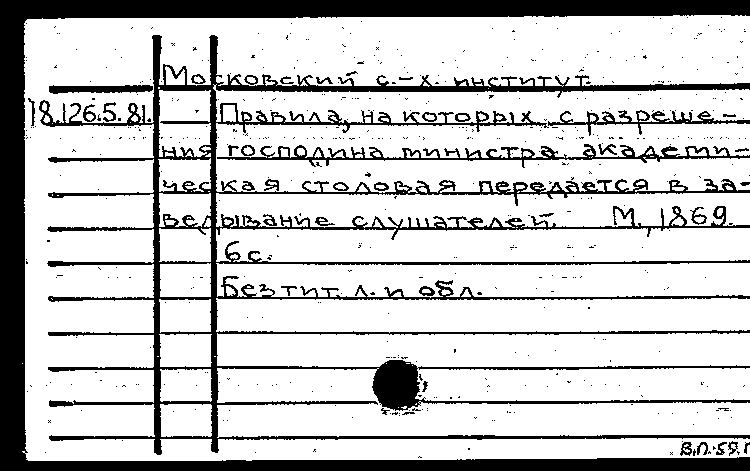 Московский с.-х. институт.
18.126.5.81. Правила, на которых с разреше-
ния господина министра академи-
ческая столовая передается в за-
ведывание слушателей. М., 1869.
6 с.
Без тит. л. и обл.
В.П.-59.